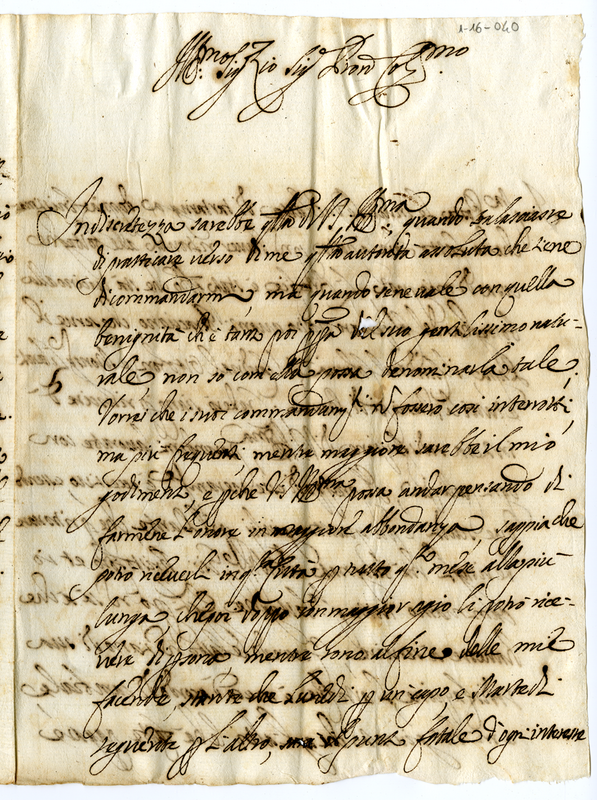 1-16-040
Ill.mo Sig.r Zio Sig.r Pron Col.mo
Indiscretezza sarebbe q.lla di V.S. Ill.ma, quando tralasciasse
di pratticare verso di me q.lla autorità assoluta che tiene
di commandarmi, mà quando se ne vale con quella
benignità ch'è tanto poi ppa del suo gentilissimo natu-
rale non sò com'ella possa denominarla tale.
Vorrei che i suoi commandam.ti nō fossero così interrotti,
ma più frequenti mentre maggiore sarebbe il mio
godimento, e pche V.S. Ill.ma possa andar pensando di
farmene l'onore in maggiore abbondanza, sappia che
potrò riceverli in q.sta p tutto q.to mese alla più
lunga che poi doppo con maggior agio li potrò rice-
vere di psona mentre sono al fine delle mie
facende, stante che Lunedì p un capo, e Martedì
seguente p l'altro, sarà il punto fatale d'ogni interesse